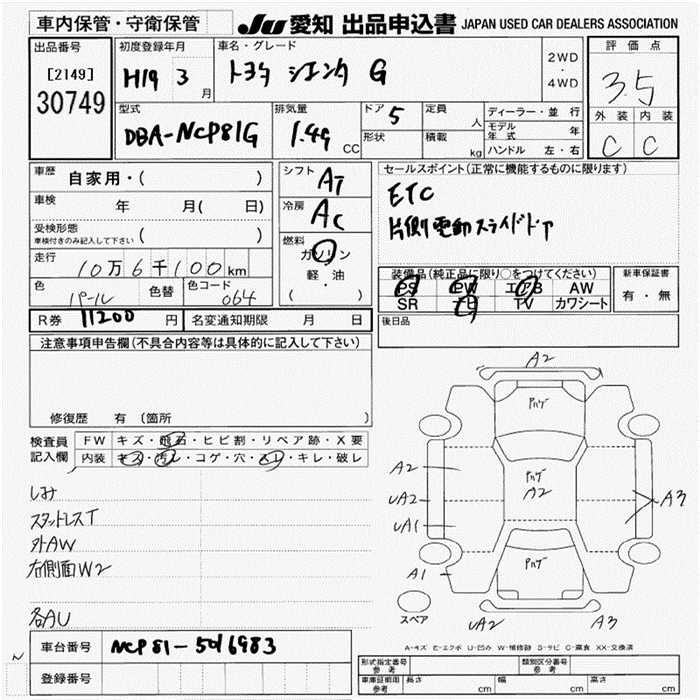 車内保管・守衛保管
JU 愛知 出品申込書 JAPAN USED CAR DEALERS ASSOCIATION
出品番号
[2149]
30749
初度登録年月
H19 3 月
車名・グレード
トヨタ シエンタ G
2WD
・
4WD
評価点
3.5
外装 内装
C C
型式
DBA-NCP81G
排気量
1.49 CC
ドア 5
形状
定員 人
積載 kg
ディーラー・並行
モデル年式 年
ハンドル 左・右
車歴 自家用・( )
車検 年 月( 日)
受検形態
車検付きのみ記入して下さい ( )
走行 10万6千100km
色 パール 色替 色コード 064
シフト AT
冷房 AC
燃料
ガソリン
軽・油
( )
セールスポイント(正常に機能するものに限ります)
ETC
片側電動スライドドア
装備品(純正品に限り○をつけてください)
PS PW エアB AW
SR ナビ TV カワシート
新車保証書
有・無
後日品
R券 11200 円 名変通知期限 月 日
注意事項申告欄(不具合内容等は具体的に記入して下さい)
修復歴 有 (箇所 )
検査員記入欄
FW キズ・飛石・ヒビ割・リペア跡・X要
内装 キズ・汚レ・コゲ・穴・スレ・キレ・破レ
しみ
スタッドレスT
外AW
右側面W2
各AU
車台番号 NCP81-5016983
登録番号
A2
A2
UA2
UA1
A1
A2
A3
UA2
A3
スペア
A-キズ E-エクボ U-凹み W-補修跡 S-サビ C-腐食 XX-交換済
形式指定番号 参考
類別区分番号 参考
車庫証明用 参考 長さ cm 幅 cm 高さ cm